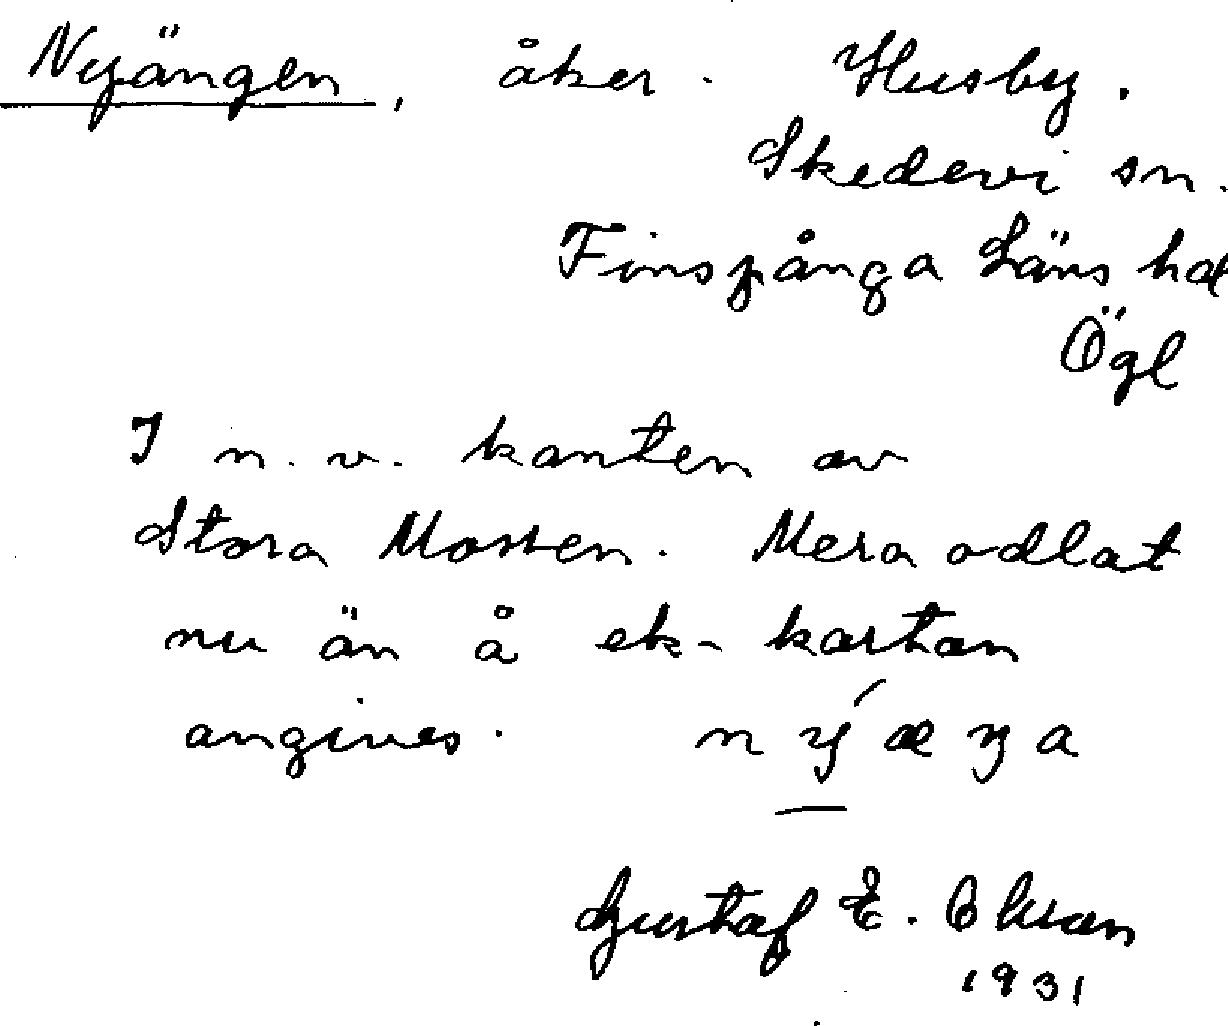 Nyängen, åker. Husby.
Skedevi sn.
Finspånga Läns hd
Ögl
I n.v. kanten av
Stora Mossen. Mera odlat
nu än å ek-kartan
angives. nýæŋa
Gustaf E. Olsson
1931